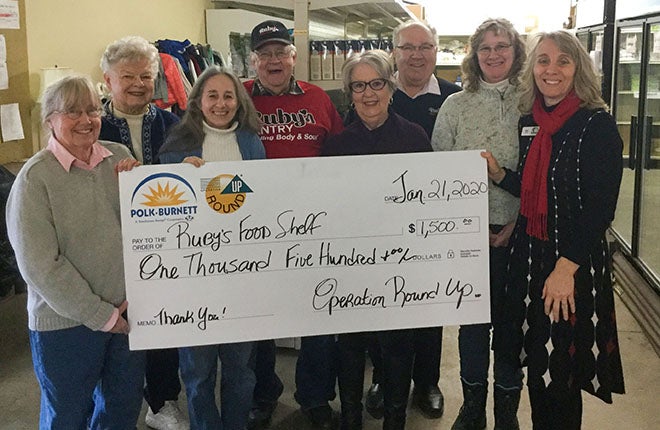 Ruby's
Ruby's
PANTRY
POLK-BURNETT
ROUND UP
DATE Jan 21, 2020
PAY TO THE
ORDER OF Ruby's Food Shelf $ 1,500.00
One Thousand Five Hundred + 00/ DOLLARS
MEMO Thank You! Operation Round Up